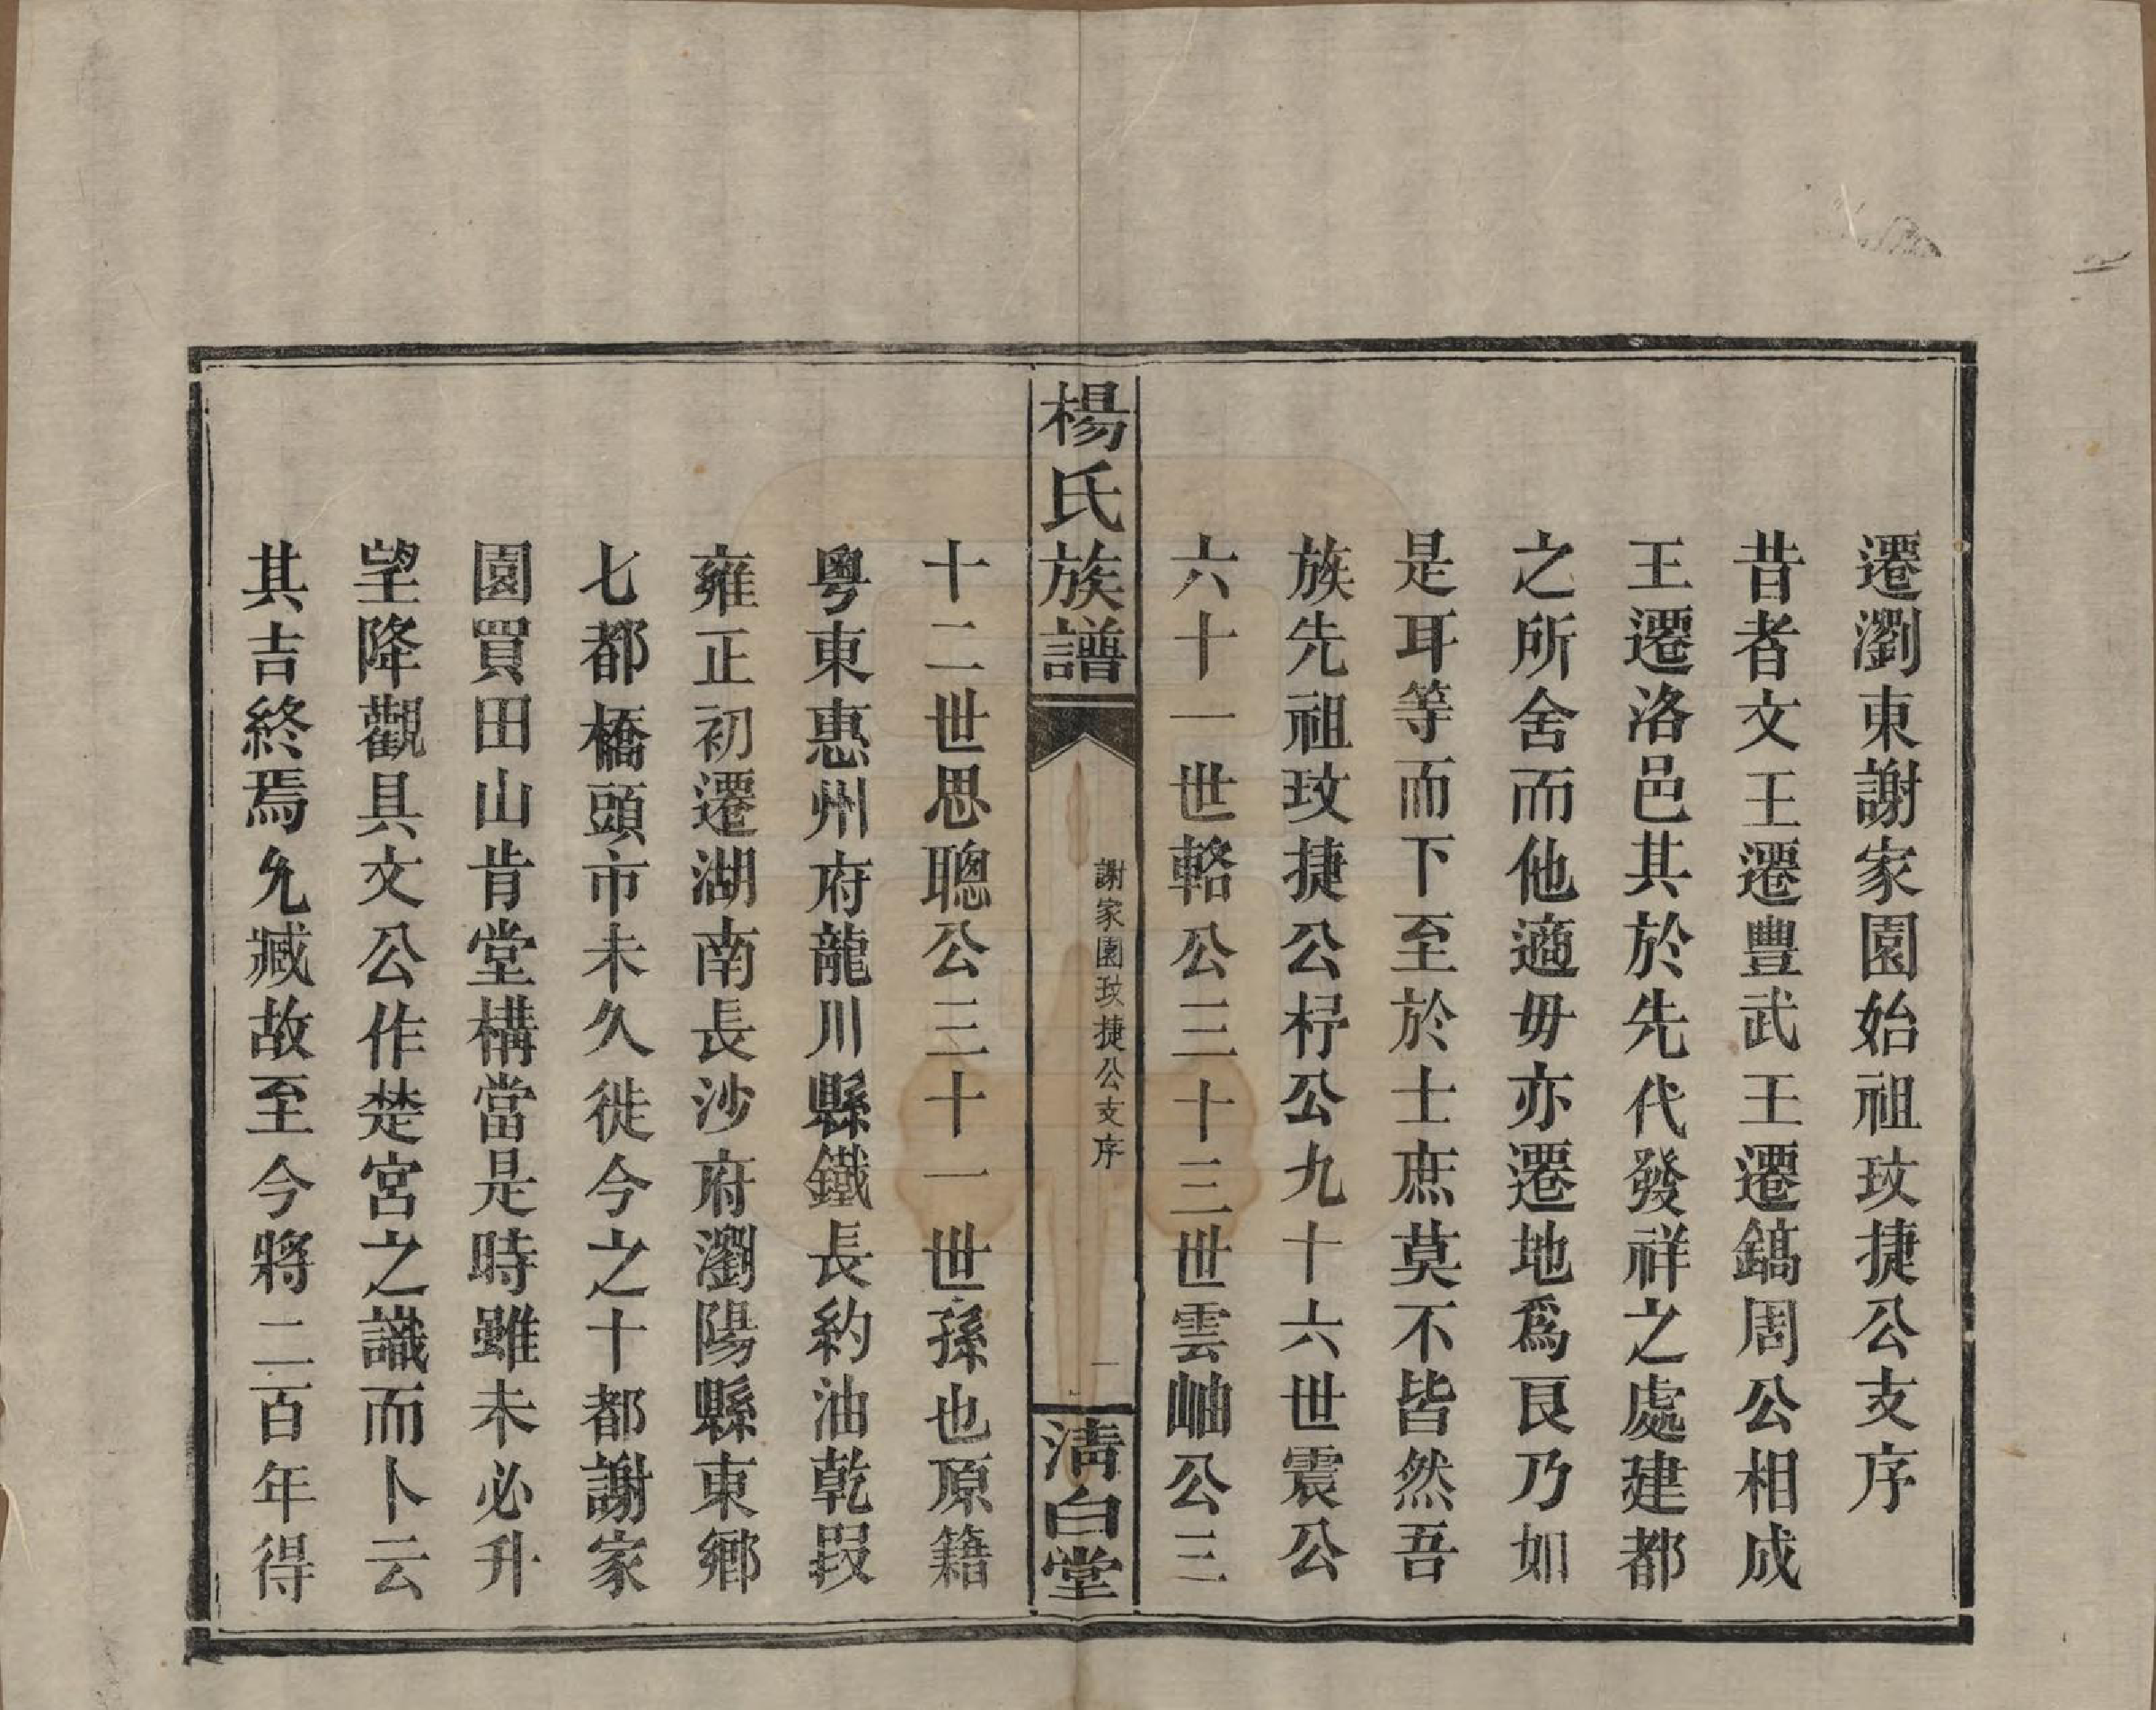 遷瀏東謝家園始祖玟捷公支序
昔者文王遷豐武王遷鎬周公相成
王遷洛邑其於先代發祥之處建都
之所舍而他適毋亦遷地爲良乃如
是耳等而下至於士庶莫不皆然吾
族先祖玟捷公杼公九十六世震公
六十一世輅公三十三世雲岫公三
楊氏族譜
謝家園玟捷公支序
一
淸白堂
十二世思聰公三十一世孫也原籍
粵東惠州府龍川縣鐵長約油乾叚
雍正初遷湖南長沙府瀏陽縣東鄉
七都橋頭市未久徙今之十都謝家
園買田山肯堂構當是時雖未必升
望降觀具文公作楚宮之識而卜云
其吉終焉允臧故至今將二百年得